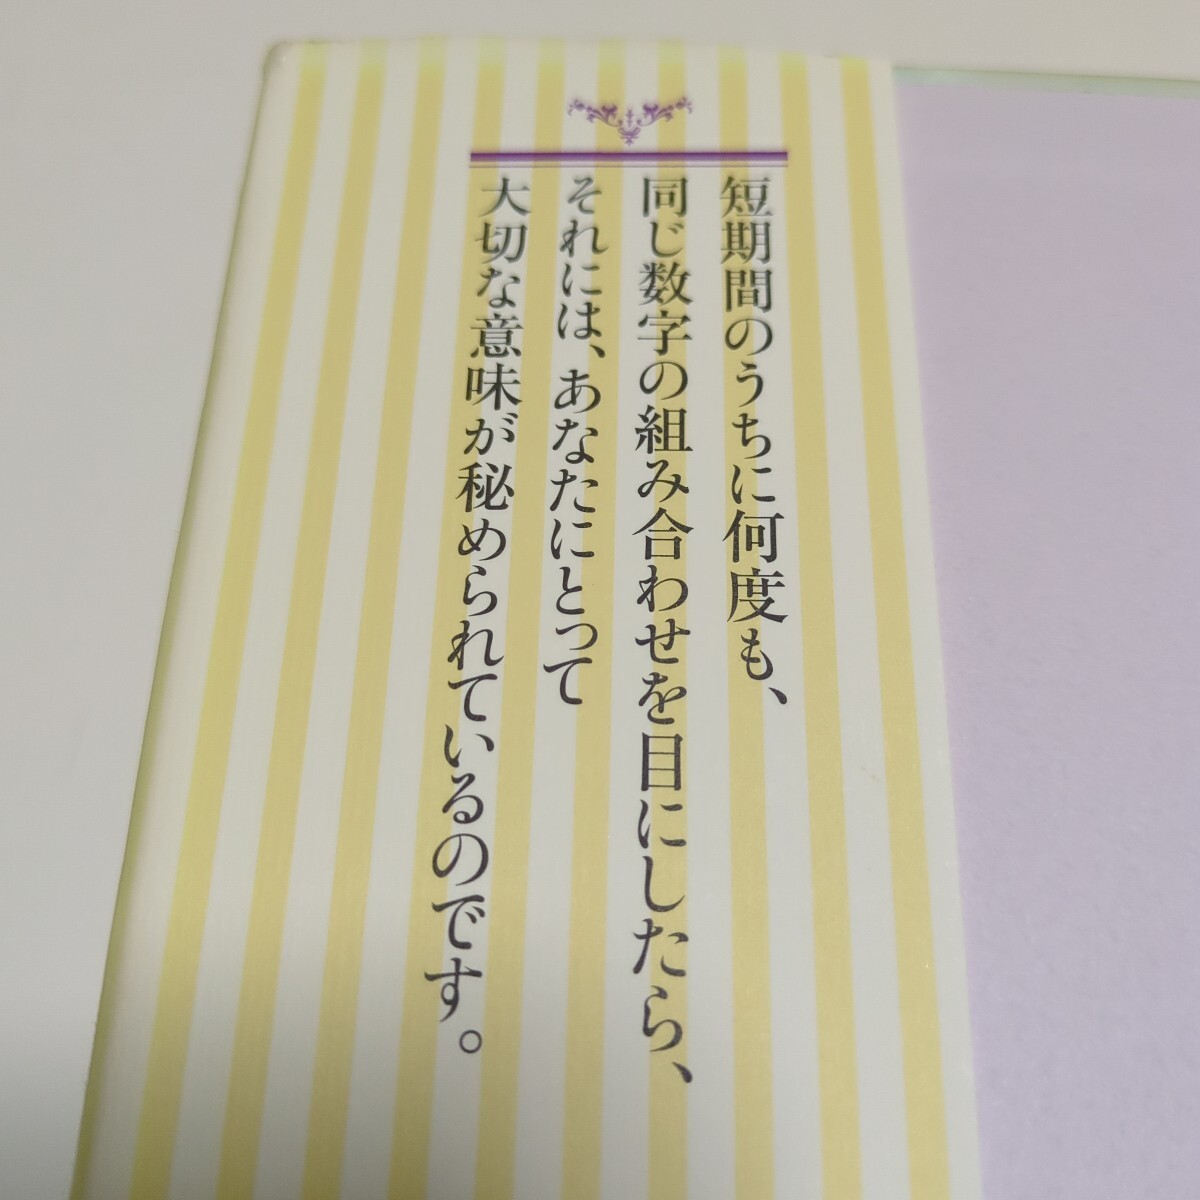 短期間のうちに何度も、
同じ数字の組み合わせを目にしたら、
それには、あなたにとって
大切な意味が秘められているのです。